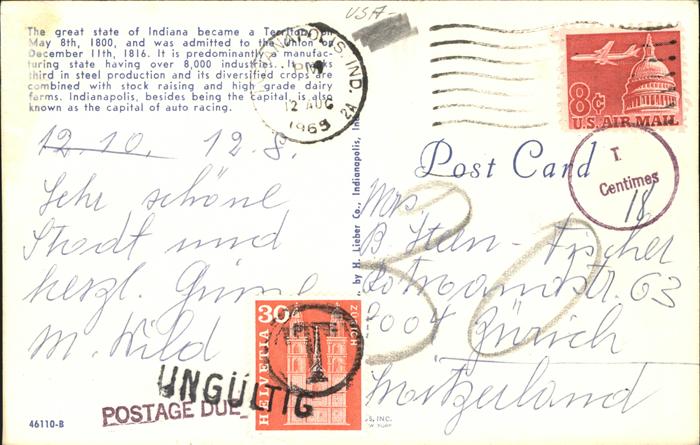 USA
The great state of Indiana became a Territory on
May 8th, 1800, and was admitted to the Union on
December 11th, 1816. It is predominantly a manufac-
turing state having over 8,000 industries. It ranks
third in steel production and its diversified crops are
combined with stock raising and high grade dairy
farms. Indianapolis, besides being the capital, is also
known as the capital of auto racing.
INDIANAPOLIS, IND.
PM
12 AUG
1965
2A
8¢
U.S. AIR MAIL
Post Card
T.
Centimes
18
12.10. 12.8.
Sehr schöne
Stadt und
herzl. Grüsse
M. Wild
by H. Lieber Co., Indianapolis, Ind
Mrs
B. Stein-Fischer
63
8004 Zürich
Switzerland
30
30
HELVETIA
ZÜRICH
T
UNGÜLTIG
POSTAGE DUE
46110-B
S, INC.